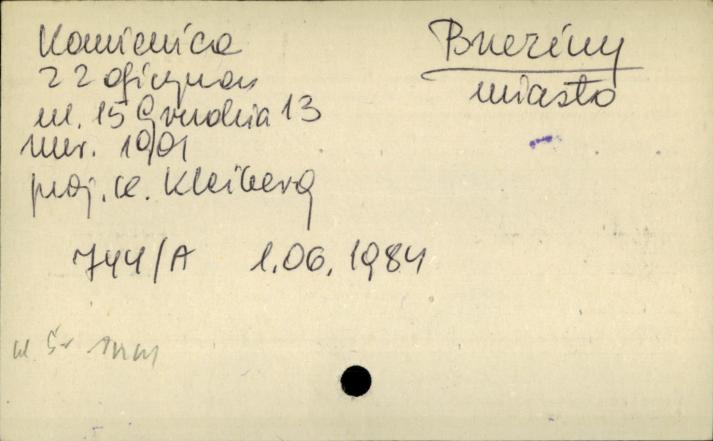 Kamienica
z 2 oficynam
ul. 15 Grudnia 13
mur. 1901
proj. K. Kleiberg
Brzeziny
miasto
744/A 1.06.1984